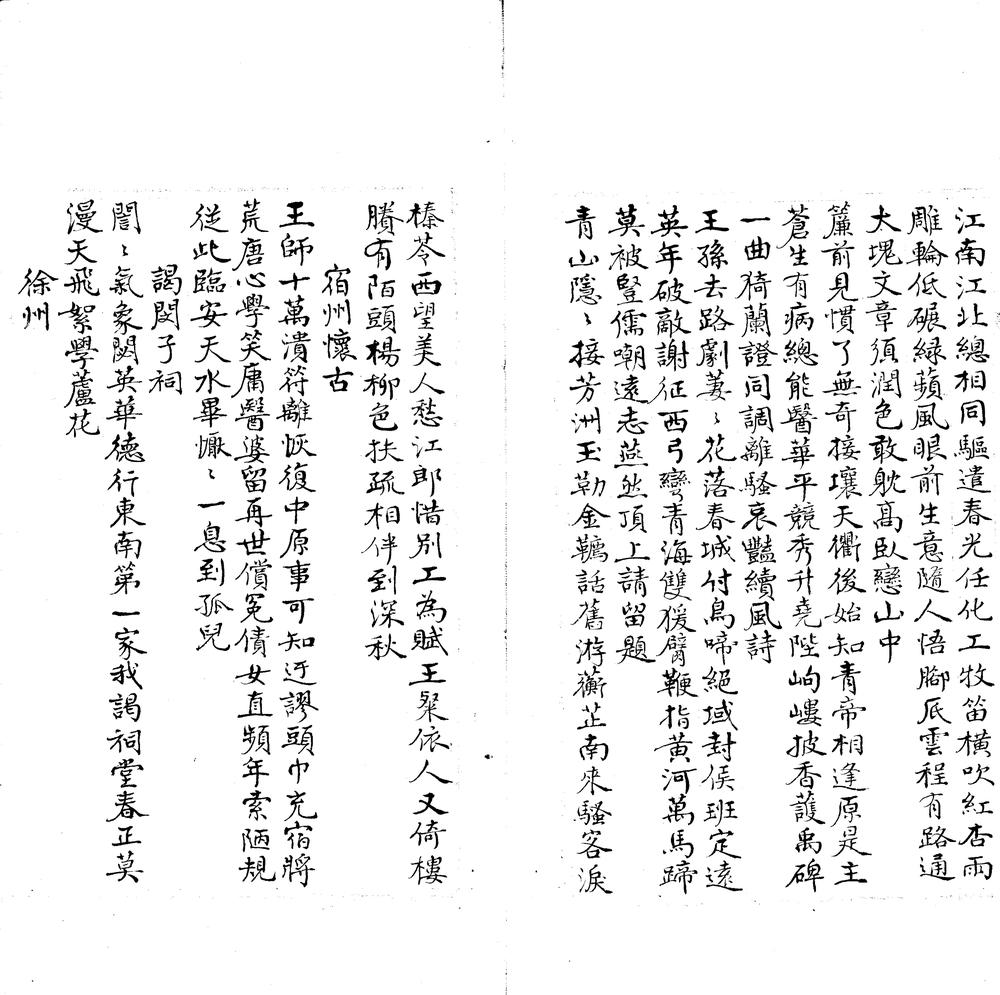 江南江北總相同驅遣春光任化工牧笛橫吹紅杏雨
雕輪低碾緑蘋風眼前生意隨人悟腳底雲程有路通
大塊文章須潤色敢躭高臥戀山中
簾前見慣了無奇接壤天衢後始知青帝相逢原是主
蒼生有病總能醫華平競秀升堯陛岣嶁披香護禹碑
一曲猗蘭證同調離騷哀豔續風詩
王孫去路劇萋〻花落春城付鳥啼絕域封侯班定遠
英年破敵謝征西弓彎青海雙猨臂鞭指黃河萬馬蹄
莫被豎儒嘲遠志燕然頂上請留題
青山隱〻接芳洲玉勒金韉話舊游蘅芷南來騷客淚
榛苓西望美人愁江郎惜別工為賦王粲依人又倚樓
賸有陌頭楊柳色扶疏相伴到深秋
宿州懷古
王師十萬潰符離恢復中原事可知迂謬頭巾充宿將
荒唐心學笑庸醫婆留再世償冤債女直頻年索陋規
從此臨安天水畢懨〻一息到孤兒
謁閔子祠
誾〻氣象閟英華德行東南第一家我謁祠堂春正莫
漫天飛絮學蘆花
徐州